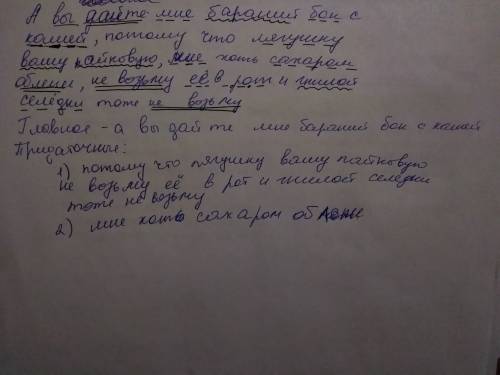 А вы дайте мне бараний бок с
кашей, потому что лягушку
вашу пайковую, мне хоть сахаром
облепи, не возьму её в рот и гнилой
селёдки тоже не возьму
Главное - а вы дайте мне бараний бок с кашей
Придаточные:
1) потому что лягушку вашу пайковую
не возьму её в рот и гнилой селедки
тоже не возьму
2) мне хоть сахаром облепи